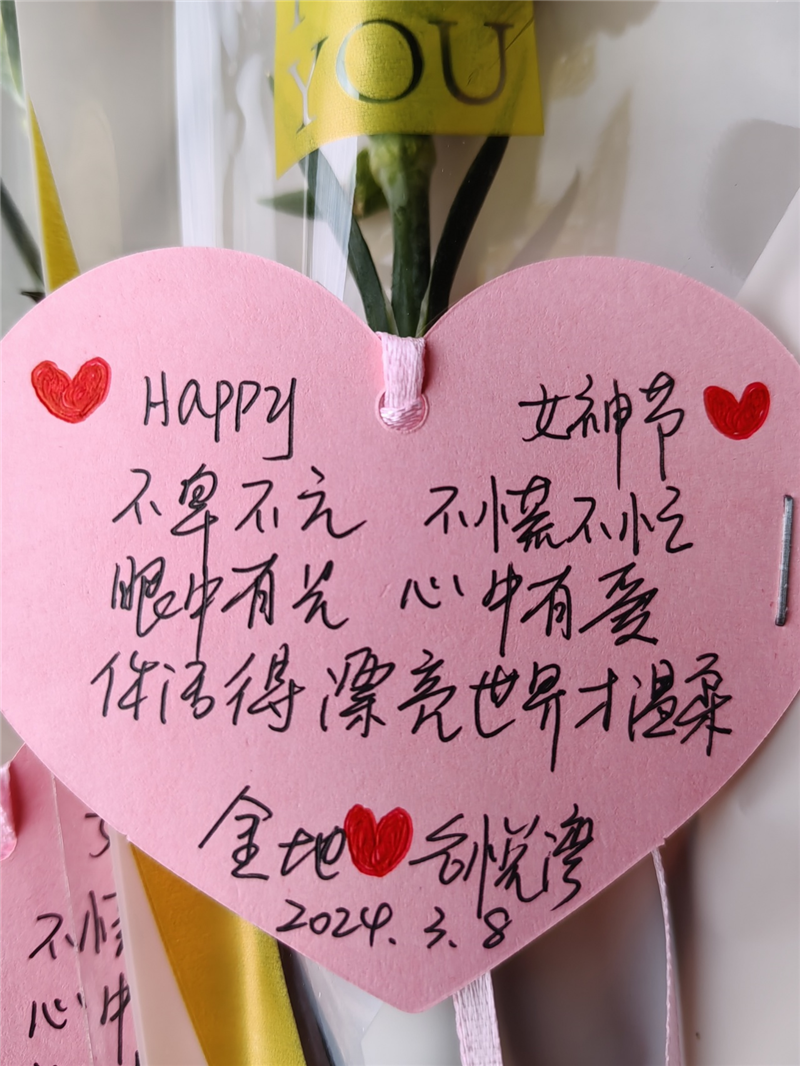 YOU
Happy 女神节
不卑不亢 不慌不忙
眼中有光 心中有爱
你活得漂亮世界才温柔
金地 悦湾
2024.3.8
不慌
心中